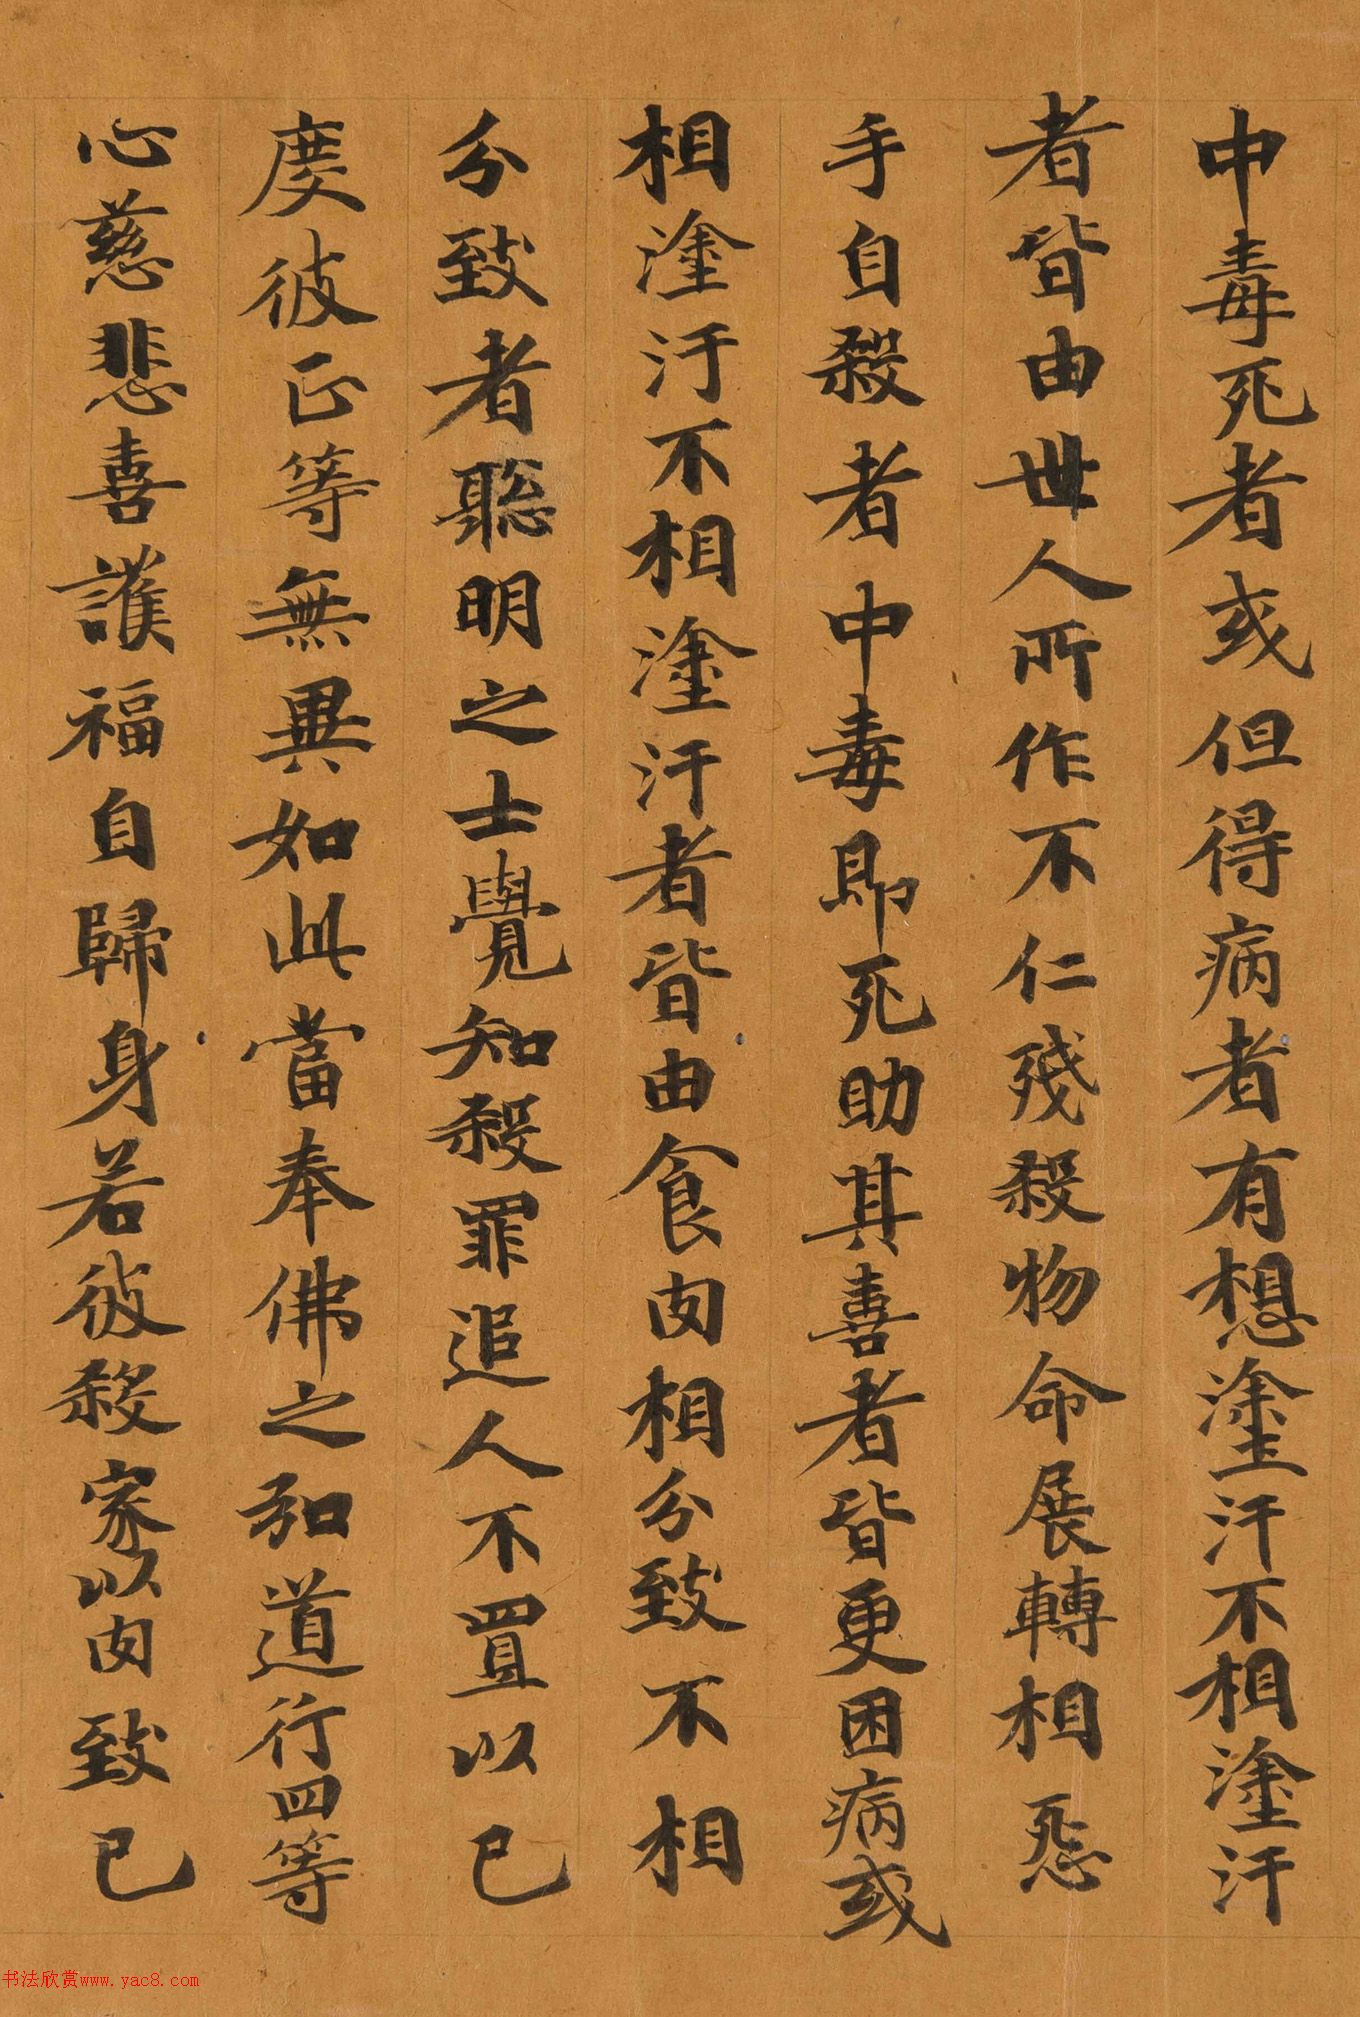 中毒死者或但得病者有想塗汙不相塗汙
者皆由世人所作不仁殘殺物命展轉相怨
手自殺者中毒即死助其喜者皆更困病或
相塗汙不相塗汙者皆由食肉相分致不相
分致者聡明之士覺知殺罪追人不置以己
度彼正等無異如此當奉佛之和道行四等
心慈悲喜護福自歸身若彼殺家以肉致已
书法欣赏www.yac8.com